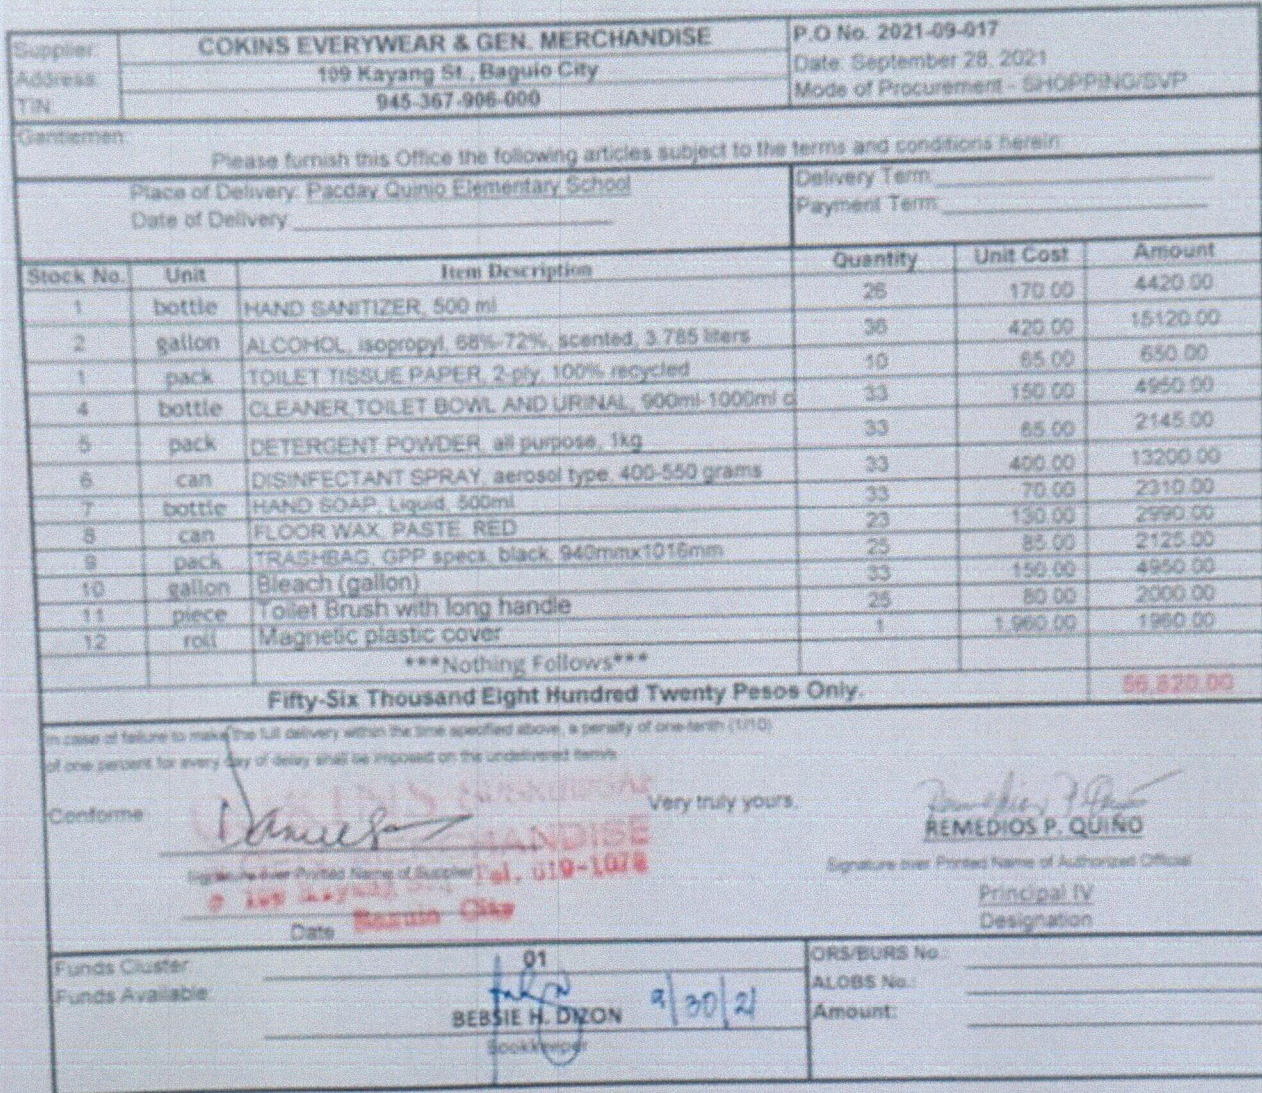 Supplier: COKINS EVERYWEAR & GEN. MERCHANDISE P.O No. 2021-09-017
Address: 109 Kayang St., Baguio City Date: September 28, 2021
TIN: 945-367-906-000 Mode of Procurement - SHOPPING/SVP
Gentlemen:
Please furnish this Office the following articles subject to the terms and conditions herein
Place of Delivery: Pacday Quinio Elementary School Delivery Term:
Date of Delivery Payment Term:
Stock No. Unit Item Description Quantity Unit Cost Amount
1 bottle HAND SANITIZER, 500 ml 26 170.00 4420.00
2 gallon ALCOHOL, isopropyl, 68%-72%, scented, 3.785 liters 36 420.00 15120.00
1 pack TOILET TISSUE PAPER, 2-ply, 100% recycled 10 65.00 650.00
4 bottle CLEANER,TOILET BOWL AND URINAL, 900ml-1000ml c 33 150.00 4950.00
5 pack DETERGENT POWDER, all purpose, 1kg 33 65.00 2145.00
6 can DISINFECTANT SPRAY, aerosol type, 400-550 grams 33 400.00 13200.00
7 bottle HAND SOAP, Liquid, 500ml 33 70.00 2310.00
8 can FLOOR WAX, PASTE, RED 23 130.00 2990.00
9 pack TRASHBAG, GPP specs, black, 940mmx1016mm 25 85.00 2125.00
10 gallon Bleach (gallon) 33 150.00 4950.00
11 piece Toilet Brush with long handle 25 80.00 2000.00
12 roll Magnetic plastic cover 1 1,960.00 1960.00
***Nothing Follows***
Fifty-Six Thousand Eight Hundred Twenty Pesos Only. 56,820.00
In case of failure to make the full delivery within the time specified above, a penalty of one-tenth (1/10)
of one percent for every day of delay shall be imposed on the undelivered item/s
Conforme Very truly yours,
REMEDIOS P. QUIÑO
HANDISE
Signature over Printed Name of Supplier Tel. 619-1078 Signature over Printed Name of Authorized Official
Principal IV
Date Baguio City Designation
Funds Cluster: 01 ORS/BURS No.:
Funds Available: ALOBS No.:
BEBSIE H. DIZON 9/30/21 Amount:
Bookkeeper